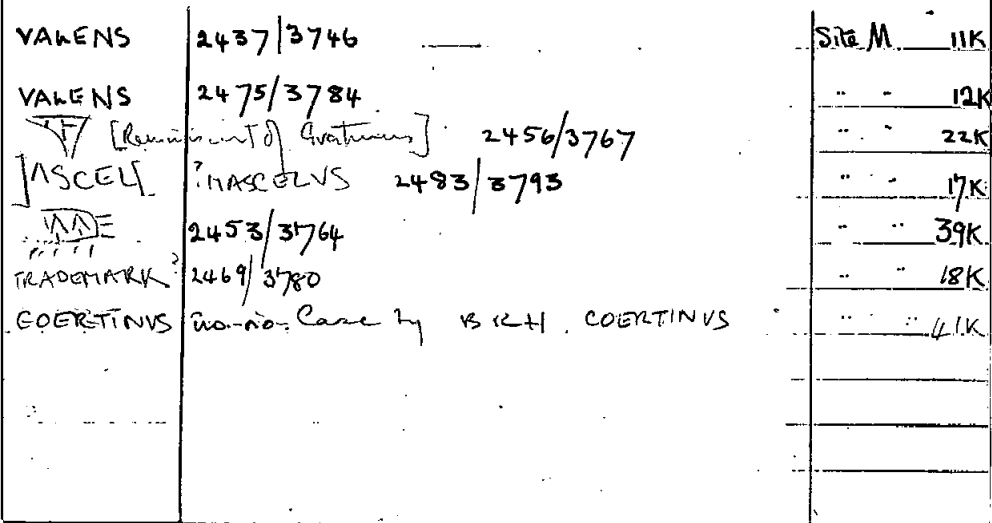 VALENS 2437/3746 Site M 11K
VALENS 2475/3784 " " 12K
[Reminiscent of Gratinus] 2456/3767 " " 22K
]ASCEL[ ?MASCELVS 2483/3793 " " 17K
2453/3764 " " 39K
TRADEMARK? 2469/3780 " " 18K
COERTINVS no-no. Case by BRH. COERTINVS " " 41K